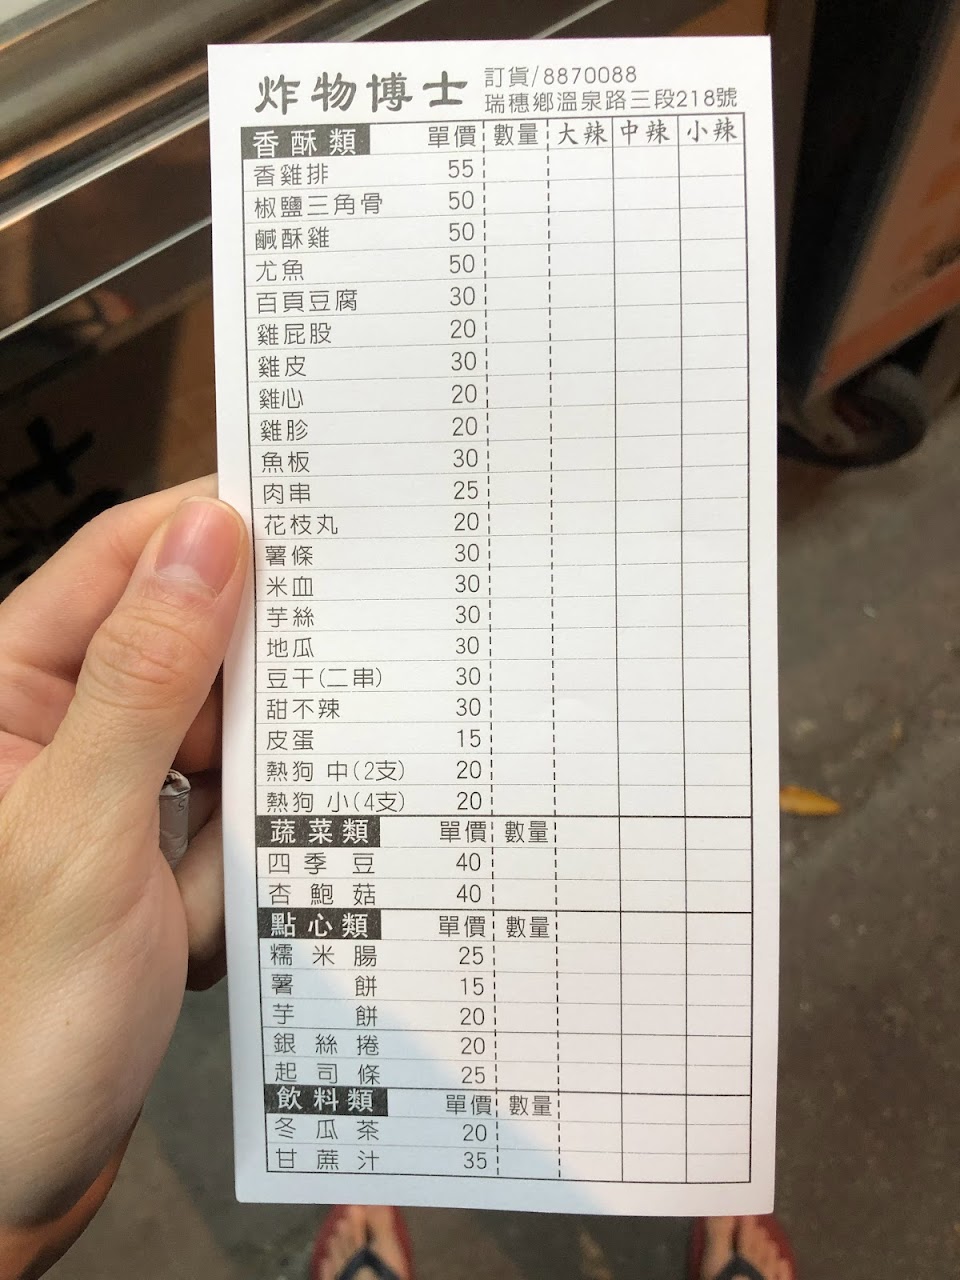 炸物博士 訂貨/8870088
瑞穗鄉溫泉路三段218號
香酥類 單價 數量 大辣 中辣 小辣
香雞排 55
椒鹽三角骨 50
鹹酥雞 50
尤魚 50
百頁豆腐 30
雞屁股 20
雞皮 30
雞心 20
雞胗 20
魚板 30
肉串 25
花枝丸 20
薯條 30
米血 30
芋絲 30
地瓜 30
豆干(二串) 30
甜不辣 30
皮蛋 15
熱狗 中(2支) 20
熱狗 小(4支) 20
蔬菜類 單價 數量
四季豆 40
杏鮑菇 40
點心類 單價 數量
糯米腸 25
薯餅 15
芋餅 20
銀絲捲 20
起司條 25
飲料類 單價 數量
冬瓜茶 20
甘蔗汁 35